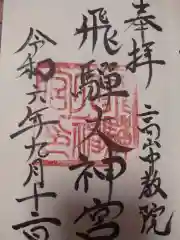 奉拝
飛騨大神宮
高山教院
令和六年九月十二日